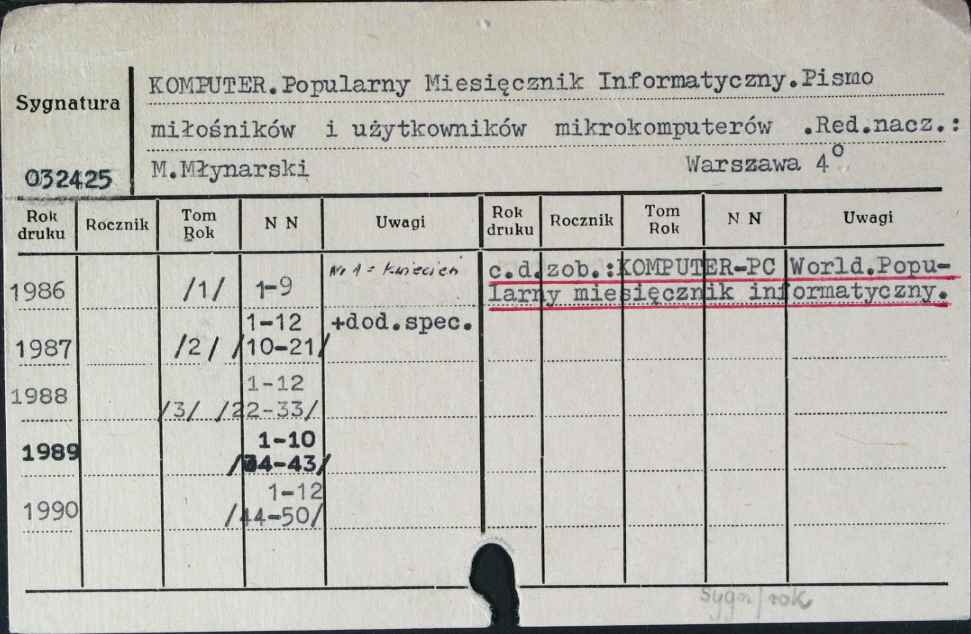 KOMPUTER.Popularny Miesięcznik Informatyczny.Pismo
Sygnatura
miłośników i użytkowników mikrokomputerów .Red.nacz.:
M.Młynarski Warszawa 4°
032425
Rok druku Rocznik Tom Rok N N Uwagi Rok druku Rocznik Tom Rok N N Uwagi
1986 /1/ 1-9 Nr 1 = kwiecień
c.d.zob.:KOMPUTER-PC World.Popu-
larny miesięcznik informatyczny.
1-12 +dod.spec.
1987 /2/ /10-21/
1-12
1988 /3/ /22-33/
1-10
1989 /34-43/
1-12
1990 /44-50/
Sygn/rok